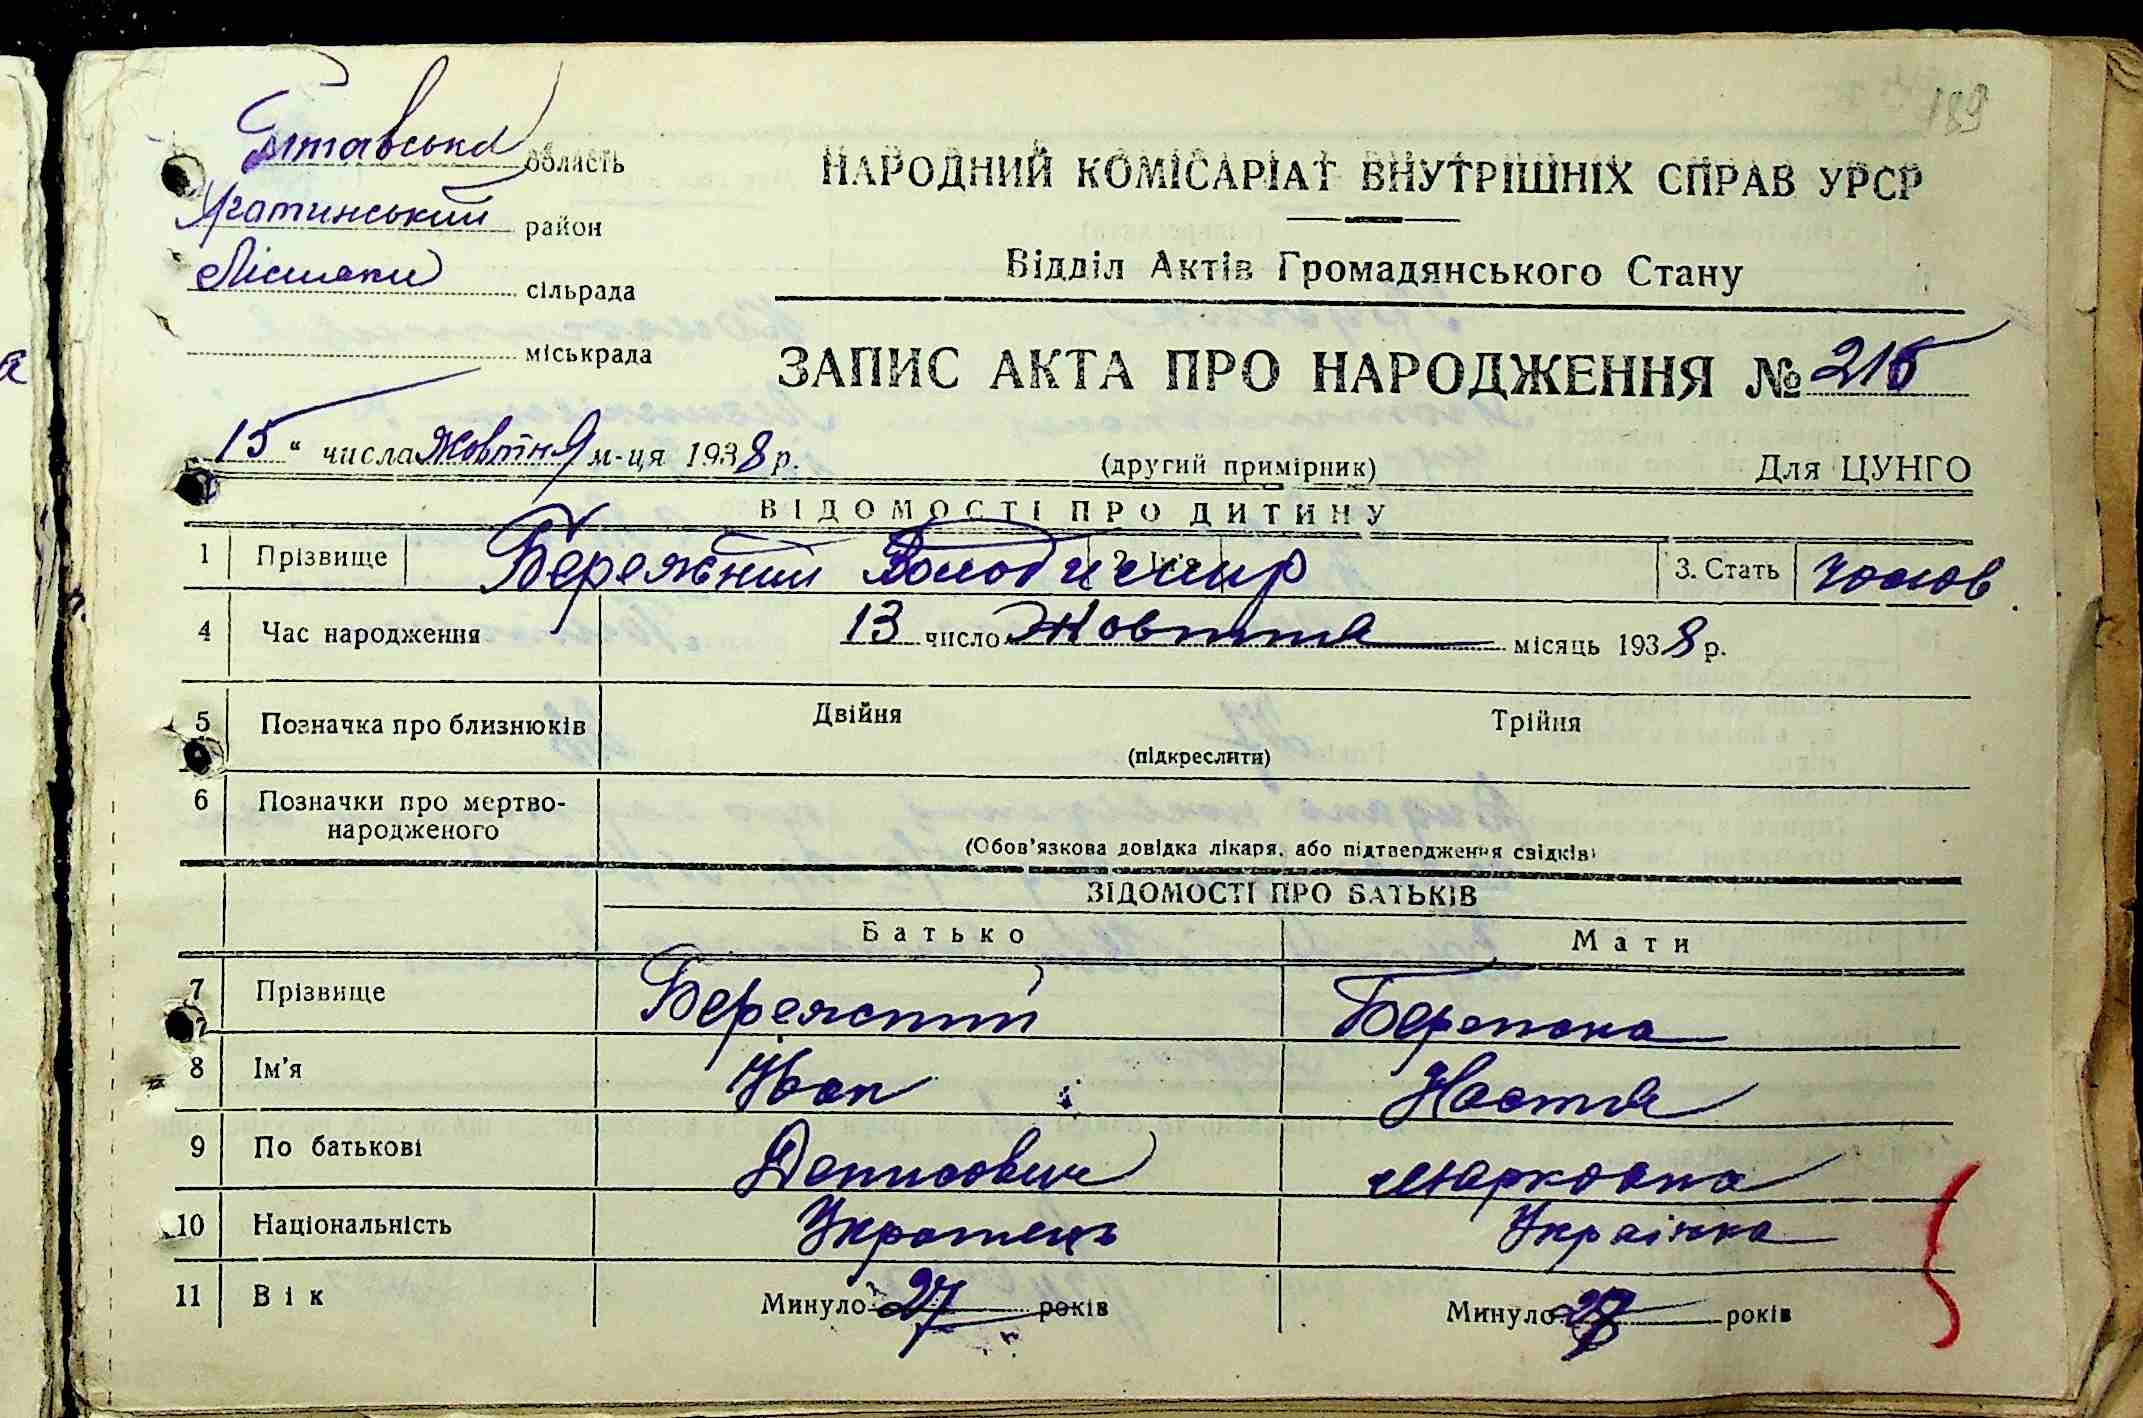 189
Полтавська область
Яготинський район
Лісняки сільрада
міськрада
НАРОДНИЙ КОМІСАРІАТ ВНУТРІШНІХ СПРАВ УРСР
Відділ Актів Громадянського Стану
ЗАПИС АКТА ПРО НАРОДЖЕННЯ №
15 " числа жовтня м-ця 1938 р.
(другий примірник)
Для ЦУНГО
ВІДОМОСТІ ПРО ДИТИНУ
1 Прізвище Бережний Володимир 3. Стать чолов
4 Час народження 13 число Жовтня місяць 1938 р.
5 Позначка про близнюків Двійня Трійня
(підкреслити)
6 Позначки про мертво-
народженого
(Обов'язкова довідка лікаря, або підтвердження свідків)
ВІДОМОСТІ ПРО БАТЬКІВ
Батько Мати
7 Прізвище Бережний Бережна
8 Ім'я Іван Настя
9 По батькові Денисович Марковна
10 Національність Українець Українка
11 Вік Минуло 27 років Минуло років